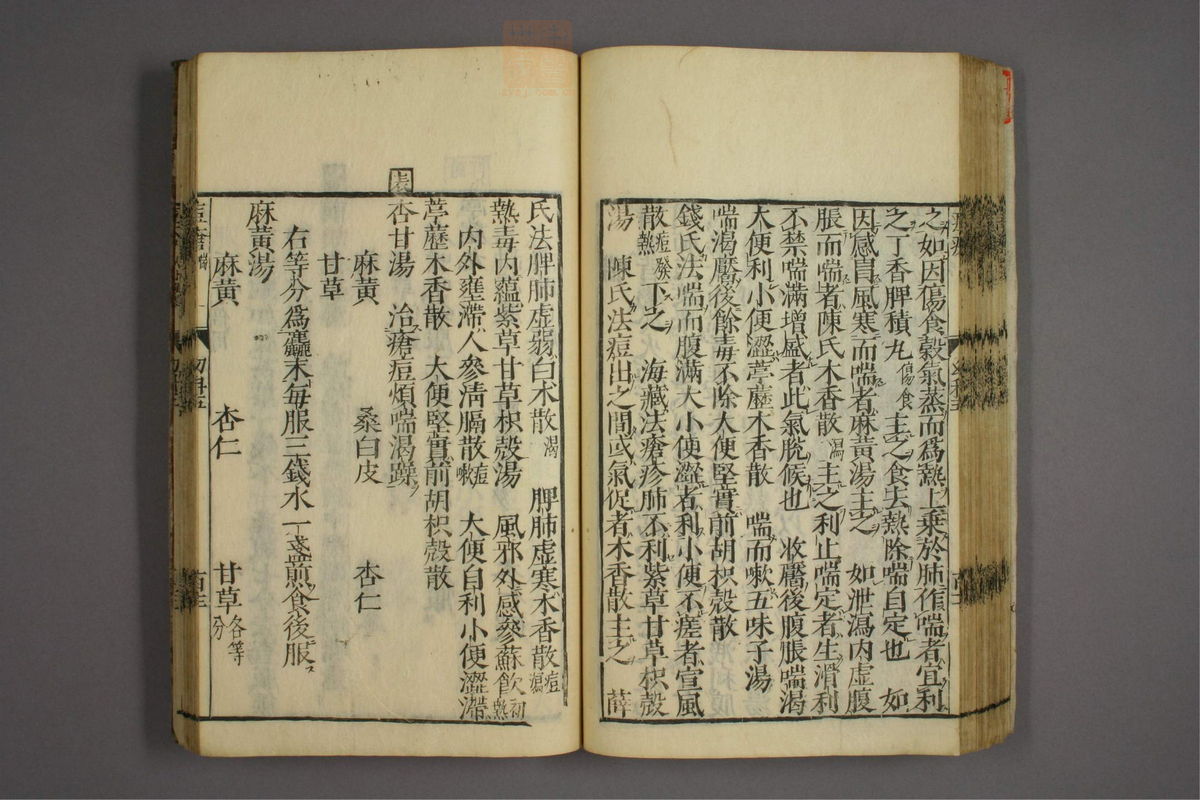 之如因傷食穀氣蒸而爲熱上乗於肺作喘者宜利
之丁香脾積丸傷食主之食去熱除喘自定也　如
因感冒風寒而喘者麻黃湯主之　如泄瀉内虚腹
脹而喘者陳氏木香散瀉主之利止喘定者生滑利
不禁喘滿增盛者此氣脫候也　收靨後腹脹喘渴
大便利小便澀葶藶木香散　喘而嗽五味子湯
喘渴靨後餘毒不除大便堅實前胡枳殼散
錢氏法喘而腹滿大小便澀者利小便不瘥者宣風
散痘發熱下之　海藏法瘡疹肺不利紫草甘草枳殼
湯　陳氏法痘出之間或氣促者木香散主之　薛
氏法脾肺虛弱白术散渴　脾肺虚寒木香散痘瀉
熱毒内蘊紫草甘草枳殼湯　風邪外感參蘇飲初熱
内外壅滯人參清膈散痘嗽　大便自利小便澀滯
葶藶木香散　大便堅實前胡枳殼散
表
杏甘湯　治瘡痘煩喘渴躁
麻黃　桑白皮　杏仁
甘草
右等分爲麤末每服三錢水一盞煎食後服
麻黃湯
麻黃　杏仁　甘草各等分
痘瘡　喘